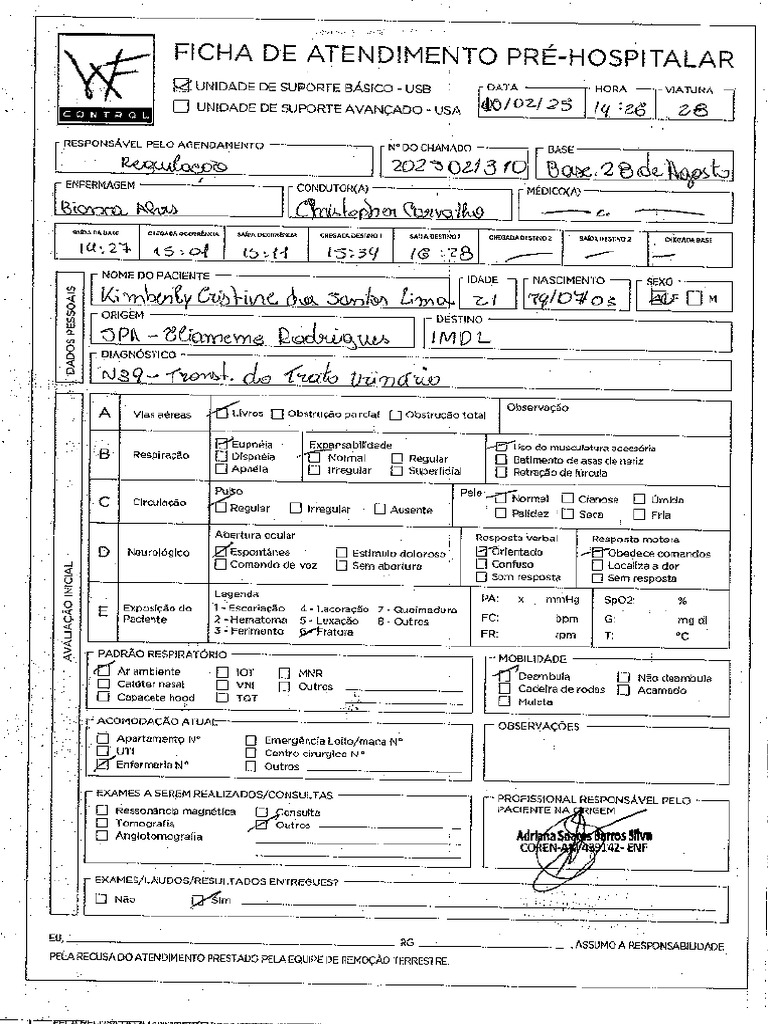 WF
CONTROL
FICHA DE ATENDIMENTO PRÉ-HOSPITALAR
UNIDADE DE SUPORTE BÁSICO - USB
UNIDADE DE SUPORTE AVANÇADO - USA
DATA HORA VIATURA
10/02/25 14:26 28
RESPONSÁVEL PELO AGENDAMENTO Nº DO CHAMADO BASE
Regulação 2025021310 Base 28 de Agosto
ENFERMAGEM CONDUTOR(A) MÉDICO(A)
Alves Christopher Carvalho
SAÍDA DA BASE CHEGADA OCORRÊNCIA SAÍDA OCORRÊNCIA CHEGADA DESTINO 1 SAÍDA DESTINO 1 CHEGADA DESTINO 2 SAÍDA DESTINO 2 CHEGADA BASE
14:27 15:01 15:11 15:34 16:28
DADOS PESSOAIS
NOME DO PACIENTE IDADE NASCIMENTO SEXO
Kimberly Cristine dos Santos Lima 21 29/07/03 F M
ORIGEM DESTINO
SPA - Eliameme Rodrigues IMDL
DIAGNÓSTICO
N39 - Transt. do Trato Urinário
AVALIAÇÃO INICIAL
A Vias aéreas Livres Obstrução parcial Obstrução total Observação
B Respiração
Eupnéia
Dispnéia
Apnéia
Expansabilidade
Normal Regular
Irregular Superficial
Uso do musculatura acessória
Batimento de asas de nariz
Retração de fúrcula
C Circulação
Pulso
Regular Irregular Ausente
Pele
Normal Cianose Úmida
Palidez Seca Fria
D Neurológico
Abertura ocular
Espontânea Estímulo doloroso
Comando de voz Sem abertura
Resposta verbal
Orientado
Confuso
Sem resposta
Resposta motora
Obedece comandos
Localiza a dor
Sem resposta
E Exposição do Paciente
Legenda
1 - Escoriação 4 - Lacoração 7 - Queimadura
2 - Hematoma 5 - Luxação 8 - Outros
3 - Ferimento 6 - Fratura
PA: x mmHg SpO2: %
FC: bpm G: mg dl
FR: rpm T: °C
PADRÃO RESPIRATÓRIO
Ar ambiente IOT MNR
Catéter nasal VNI Outros
Capacete hood TQT
MOBILIDADE
Deambula Não deambula
Cadeira de rodas Acamado
Muleta
ACOMODAÇÃO ATUAL
Apartamento Nº Emergência Leito/maca Nº
UTI Centro cirurgico Nº
Enfermaria Nº Outros
OBSERVAÇÕES
EXAMES A SEREM REALIZADOS/CONSULTAS
Ressonância magnética Consulta
Tomografia Outros
Angiotomografia
PROFISSIONAL RESPONSÁVEL PELO
PACIENTE NA ORIGEM
Adriana Soares Barros Silva
EXAMES/LAUDOS/RESULTADOS ENTREGUES?
Não Sim
EU, RG , ASSUMO A RESPONSABILIDADE
PELA RECUSA DO ATENDIMENTO PRESTADO PELA EQUIPE DE REMOÇÃO TERRESTRE.